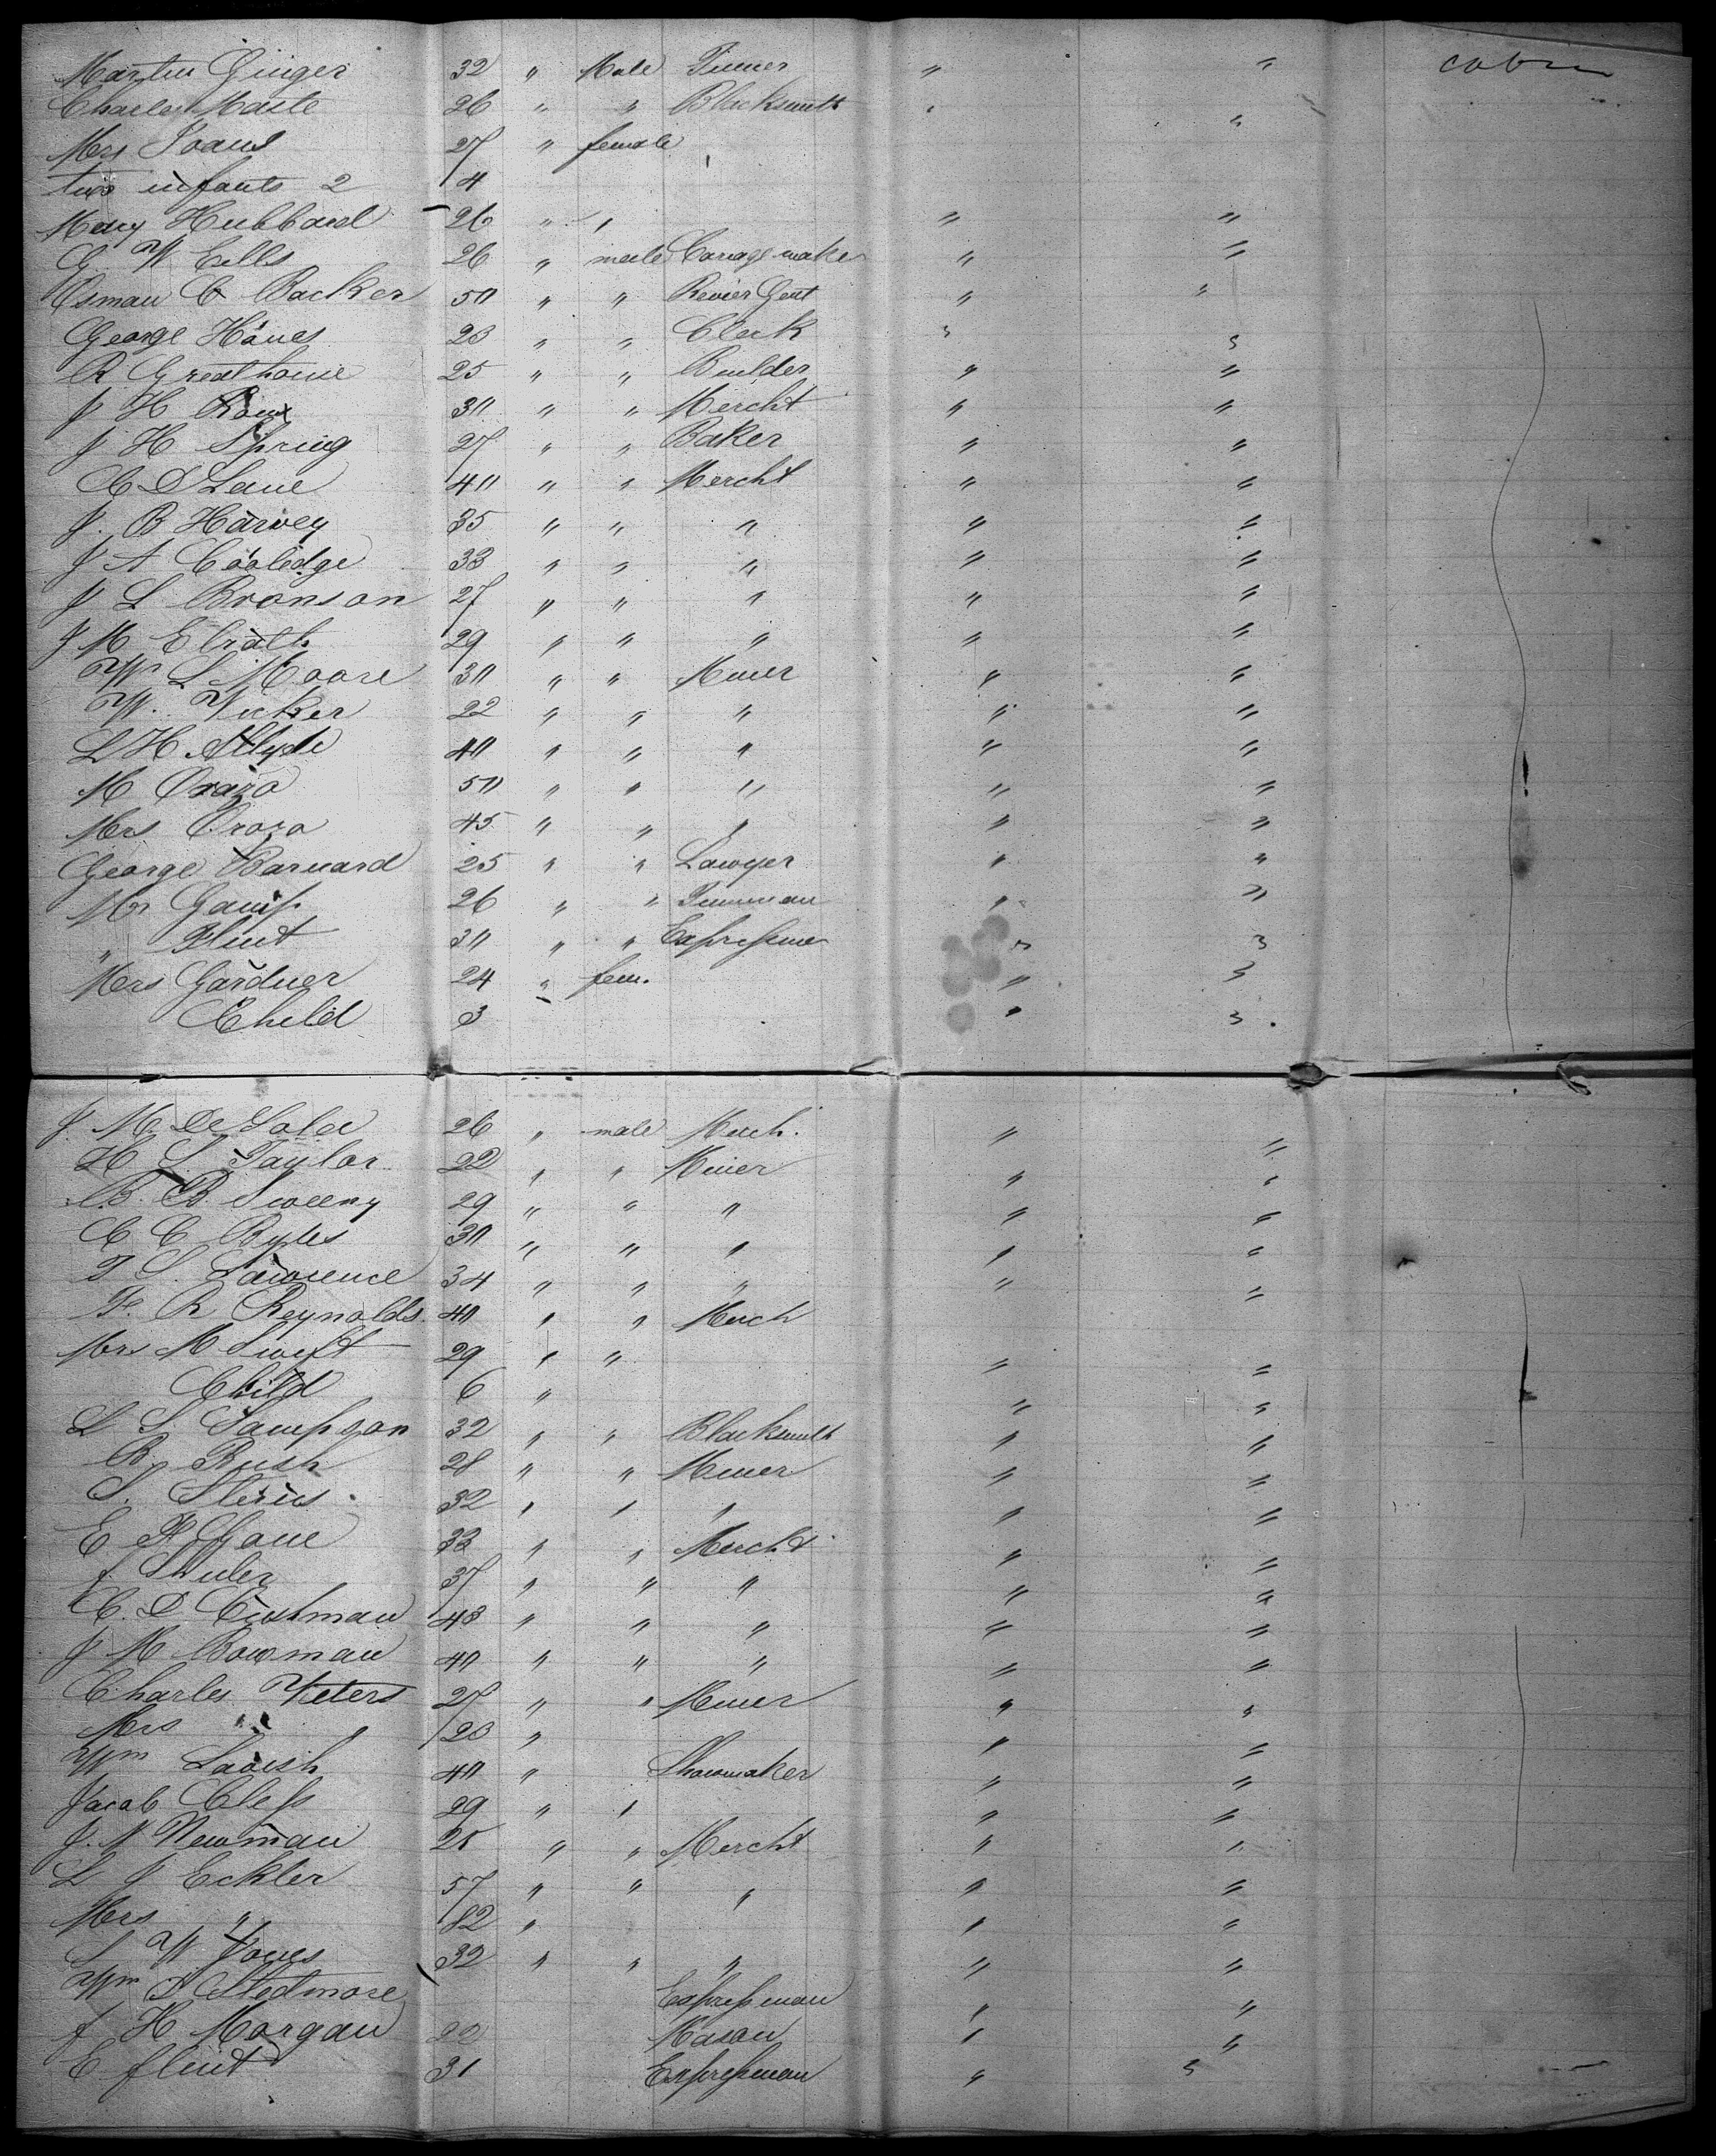 Martin Ginger 32 " Male Tinner " " cabin
Charles Maste 26 " " Blacksmith " "
Mrs Soans 27 " female
two infants 2 4
Mary Hubbard 26 " " " "
G. W Eells 26 " male Carriage maker " "
Osman C Backer 50 " " "
George Hanes 23 " " Clerk " "
R Greathouse 25 " " Builder " "
J H 30 " " Mercht " "
J H Spring 27 " " Baker " "
C D Lane 40 " " Mercht " "
J. B Harvey 35 " " " " "
J A Coolidge 33 " " " " "
J L Bronson 27 " " " " "
J M Elrath 29 " " " " "
Wm L Moore 30 " " Miner " "
W. Vicker 22 " " " " "
L H Allyde 40 " " " " "
M Oraza 50 " " " " "
Mrs Oraza 45 " " " " "
George Barnard 25 " " Lawyer " "
Mr 26 " " " "
" Flint 30 " " Expressman " "
Mrs Gardner 24 " fem. " "
Child 3 " "
J. M. De Sola 26 " male Merch. " "
H L Taylor 22 " " Miner " "
B. B. Sweeny 29 " " " " "
C C Byles 30 " " " " "
T S. Lawrence 34 " " " " "
F. R Reynolds. 40 " " Merch
Mrs M Swift 29 " " " "
Child 6 " " "
L S. Sampson 32 " " Blacksmith " "
B. Rush 28 " " Miner " "
S. Sterns 32 " " " " "
E F Gane 33 " " Mercht " "
J Shuler 37 " " " " "
C. D Cushman 43 " " " " "
J M Bowman 40 " " " " "
Charles Peters 27 " " Miner " "
Mrs " 23 " " "
Wm Lavish 40 " Shoemaker " "
Jacob Cless 29 " " " "
J. N Newman 25 " " Mercht " "
L J Eckler 57 " " " " "
Mrs " " " "
S W Jones 32 " " " " "
Wm Expressman " "
J H Morgan 22 Mason " "
E flint 31 Expressman " "